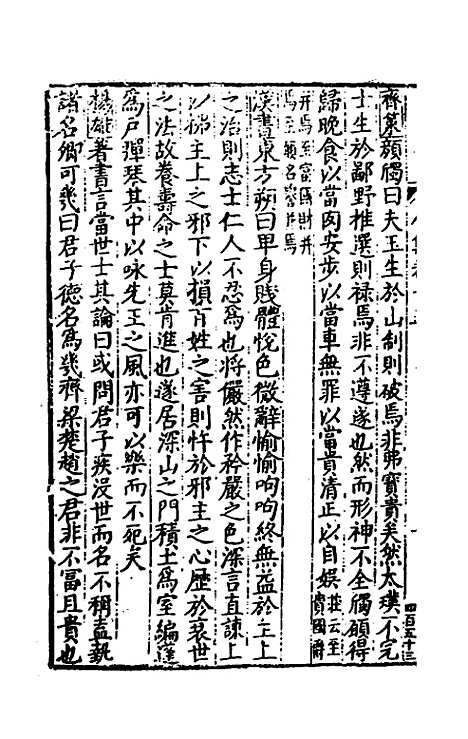 齊策顏斶曰夫玉生於山制則破焉非弗寶貴矣然太璞不完
士生於鄙野推選則祿焉非不遵遂也然而形神不全斶願得
歸晚食以當肉安步以當車無罪以當貴清正以自娛莊云至
貴國爵
并焉至富國財并
焉至願名譽并焉
漢書東方朔曰卑身賤體悅色微辭愉愉呴呴終無益於主上
之治則志士仁人不忍爲也將儼然作矜嚴之色深言直諫上
以拂主上之邪下以損百姓之害則忤於邪主之心歷於衰世
之法故養壽命之士莫肯進也遂居深山之門積土爲室編蓬
爲戶彈琴其中以咏先王之風亦可以樂而不死矣
楊雄著書言當世士其論曰或問君子疾沒世而名不稱盍執
諸名卿可幾曰君子德名爲幾齊梁楚趙之君非不富且貴也
四百五十三